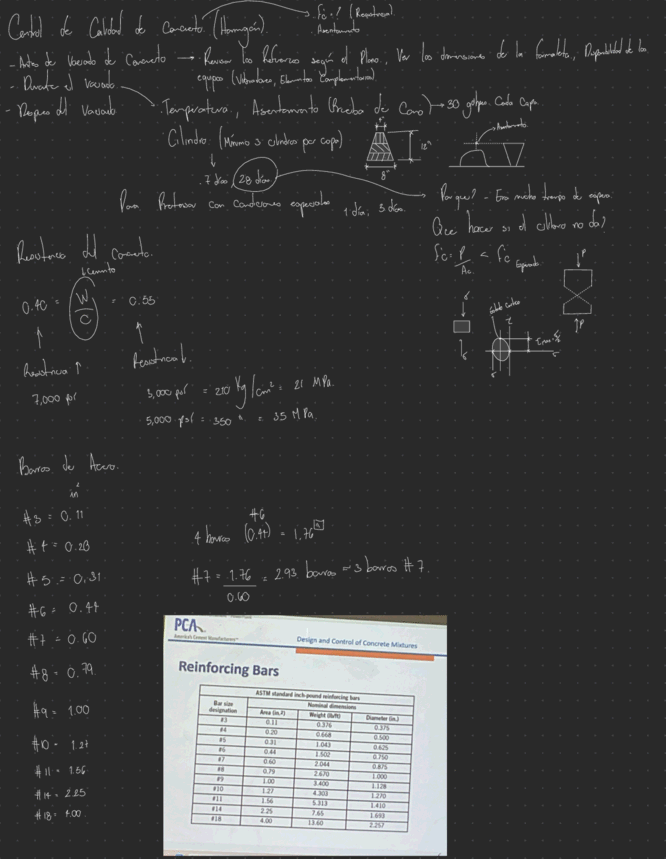 Control de Calidad de Concreto (Hormigón).
f'c = ? (Resistencia)
Asentamiento
- Antes de Vaciado de Concreto → Revisar los Refuerzos según el Plano, Ver las dimensiones de la formaleta, Disponibilidad de los
equipos (Vibradores, Elementos Complementarios)
- Durante el Vaciado
- Despues del Vaciado
Temperatura, Asentamiento (Prueba de Cono) → 30 golpes. Cada Capa.
Cilindro (Mínimo 3 cilindros por capa)
4"
12"
8"
Asentamiento
7 días, 28 días
Para Probetas con Condiciones especiales 1 día, 3 días.
Por que? - Era mucho tiempo de espera.
Que hacer si el cilindro no da?
f'c = P/Ac < f'c Esperado
P
P
Resistencia del Concreto.
Cemento
0.40 = W/C = 0.55
Resistencia ↑
Resistencia ↓
7,000 psi
3,000 psi = 210 Kg/cm² = 21 MPa.
5,000 psi = 350 " = 35 MPa.
Barras de Acero.
in²
#3 = 0.11
#4 = 0.20
#5 = 0.31
#6 = 0.44
#7 = 0.60
#8 = 0.79
#9 = 1.00
#10 = 1.27
#11 = 1.56
#14 = 2.25
#18 = 4.00
#6
4 barras (0.44) = 1.76
#7 = 1.76/0.60 = 2.93 barras ≈ 3 barras #7.
PCA
America's Cement Manufacturers
Design and Control of Concrete Mixtures
Reinforcing Bars
ASTM standard inch-pound reinforcing bars
Bar size designation
Nominal dimensions
Area (in.²) Weight (lb/ft) Diameter (in.)
#3 0.11 0.376 0.375
#4 0.20 0.668 0.500
#5 0.31 1.043 0.625
#6 0.44 1.502 0.750
#7 0.60 2.044 0.875
#8 0.79 2.670 1.000
#9 1.00 3.400 1.128
#10 1.27 4.303 1.270
#11 1.56 5.313 1.410
#14 2.25 7.65 1.693
#18 4.00 13.60 2.257